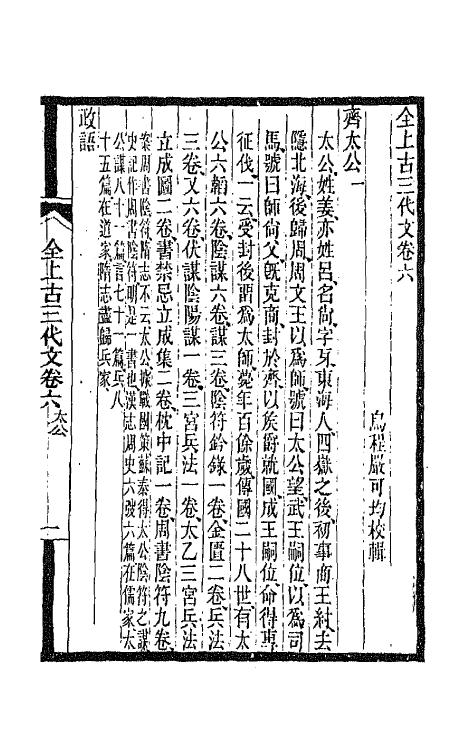 全上古三代文卷六
烏程嚴可均校輯
齊太公一
太公姓姜亦姓呂名尚字牙東海人四嶽之後初事商王紂去
隱北海後歸周周文王以爲師號曰太公望武王嗣位以爲司
馬號曰師尚父旣克商封於齊以矦爵就國成王嗣位命得專
征伐一云受封後畱爲太師薨年百餘歲傳國二十八世有太
公六韜六卷陰謀六卷謀三卷陰符鈐錄一卷金匱二卷兵法
三卷又六卷伏謀陰陽謀一卷三宮兵法一卷太乙三宮兵法
立成圖二卷書禁忌立成集二卷枕中記一卷周書陰符九卷
案周書陰符隋志不云太公據戰國策蘇秦得太公陰符之謀
史記作周書陰符明是一書也漢志周史六弢六篇在儒家太
公謀八十一篇言七十一篇兵八
十五篇在道家隋志盡歸兵家
政語
全上古三代文卷六
太公
一